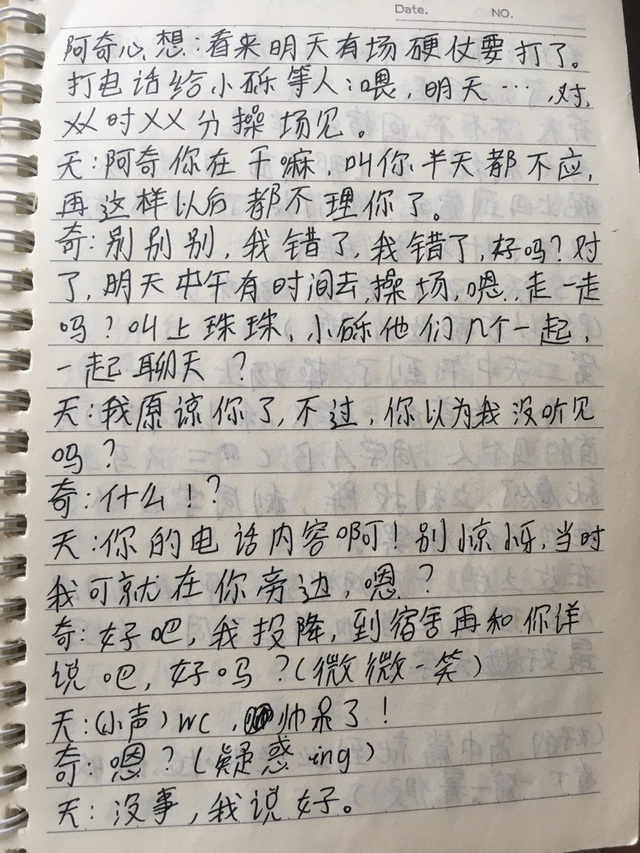 Date. NO.
阿奇心想:看来明天有场硬仗要打了。
打电话给小砾等人:喂,明天…,对,
XX时XX分操场见。
天:阿奇你在干嘛,叫你半天都不应,
再这样以后都不理你了。
奇:别别别,我错了,我错了,好吗?对
了,明天中午有时间去,操场,嗯,走一走
吗?叫上珠珠,小砾他们几个一起,
一起聊天?
天:我原谅你了,不过,你以为我没听见
吗?
奇:什么!?
天:你的电话内容啊!别惊讶,当时
我可就在你旁边,嗯?
奇:好吧,我投降,到宿舍再和你详
说吧,好吗?(微微一笑)
天:(小声)wc,帅呆了!
奇:嗯?(疑惑ing)
天:没事,我说好。